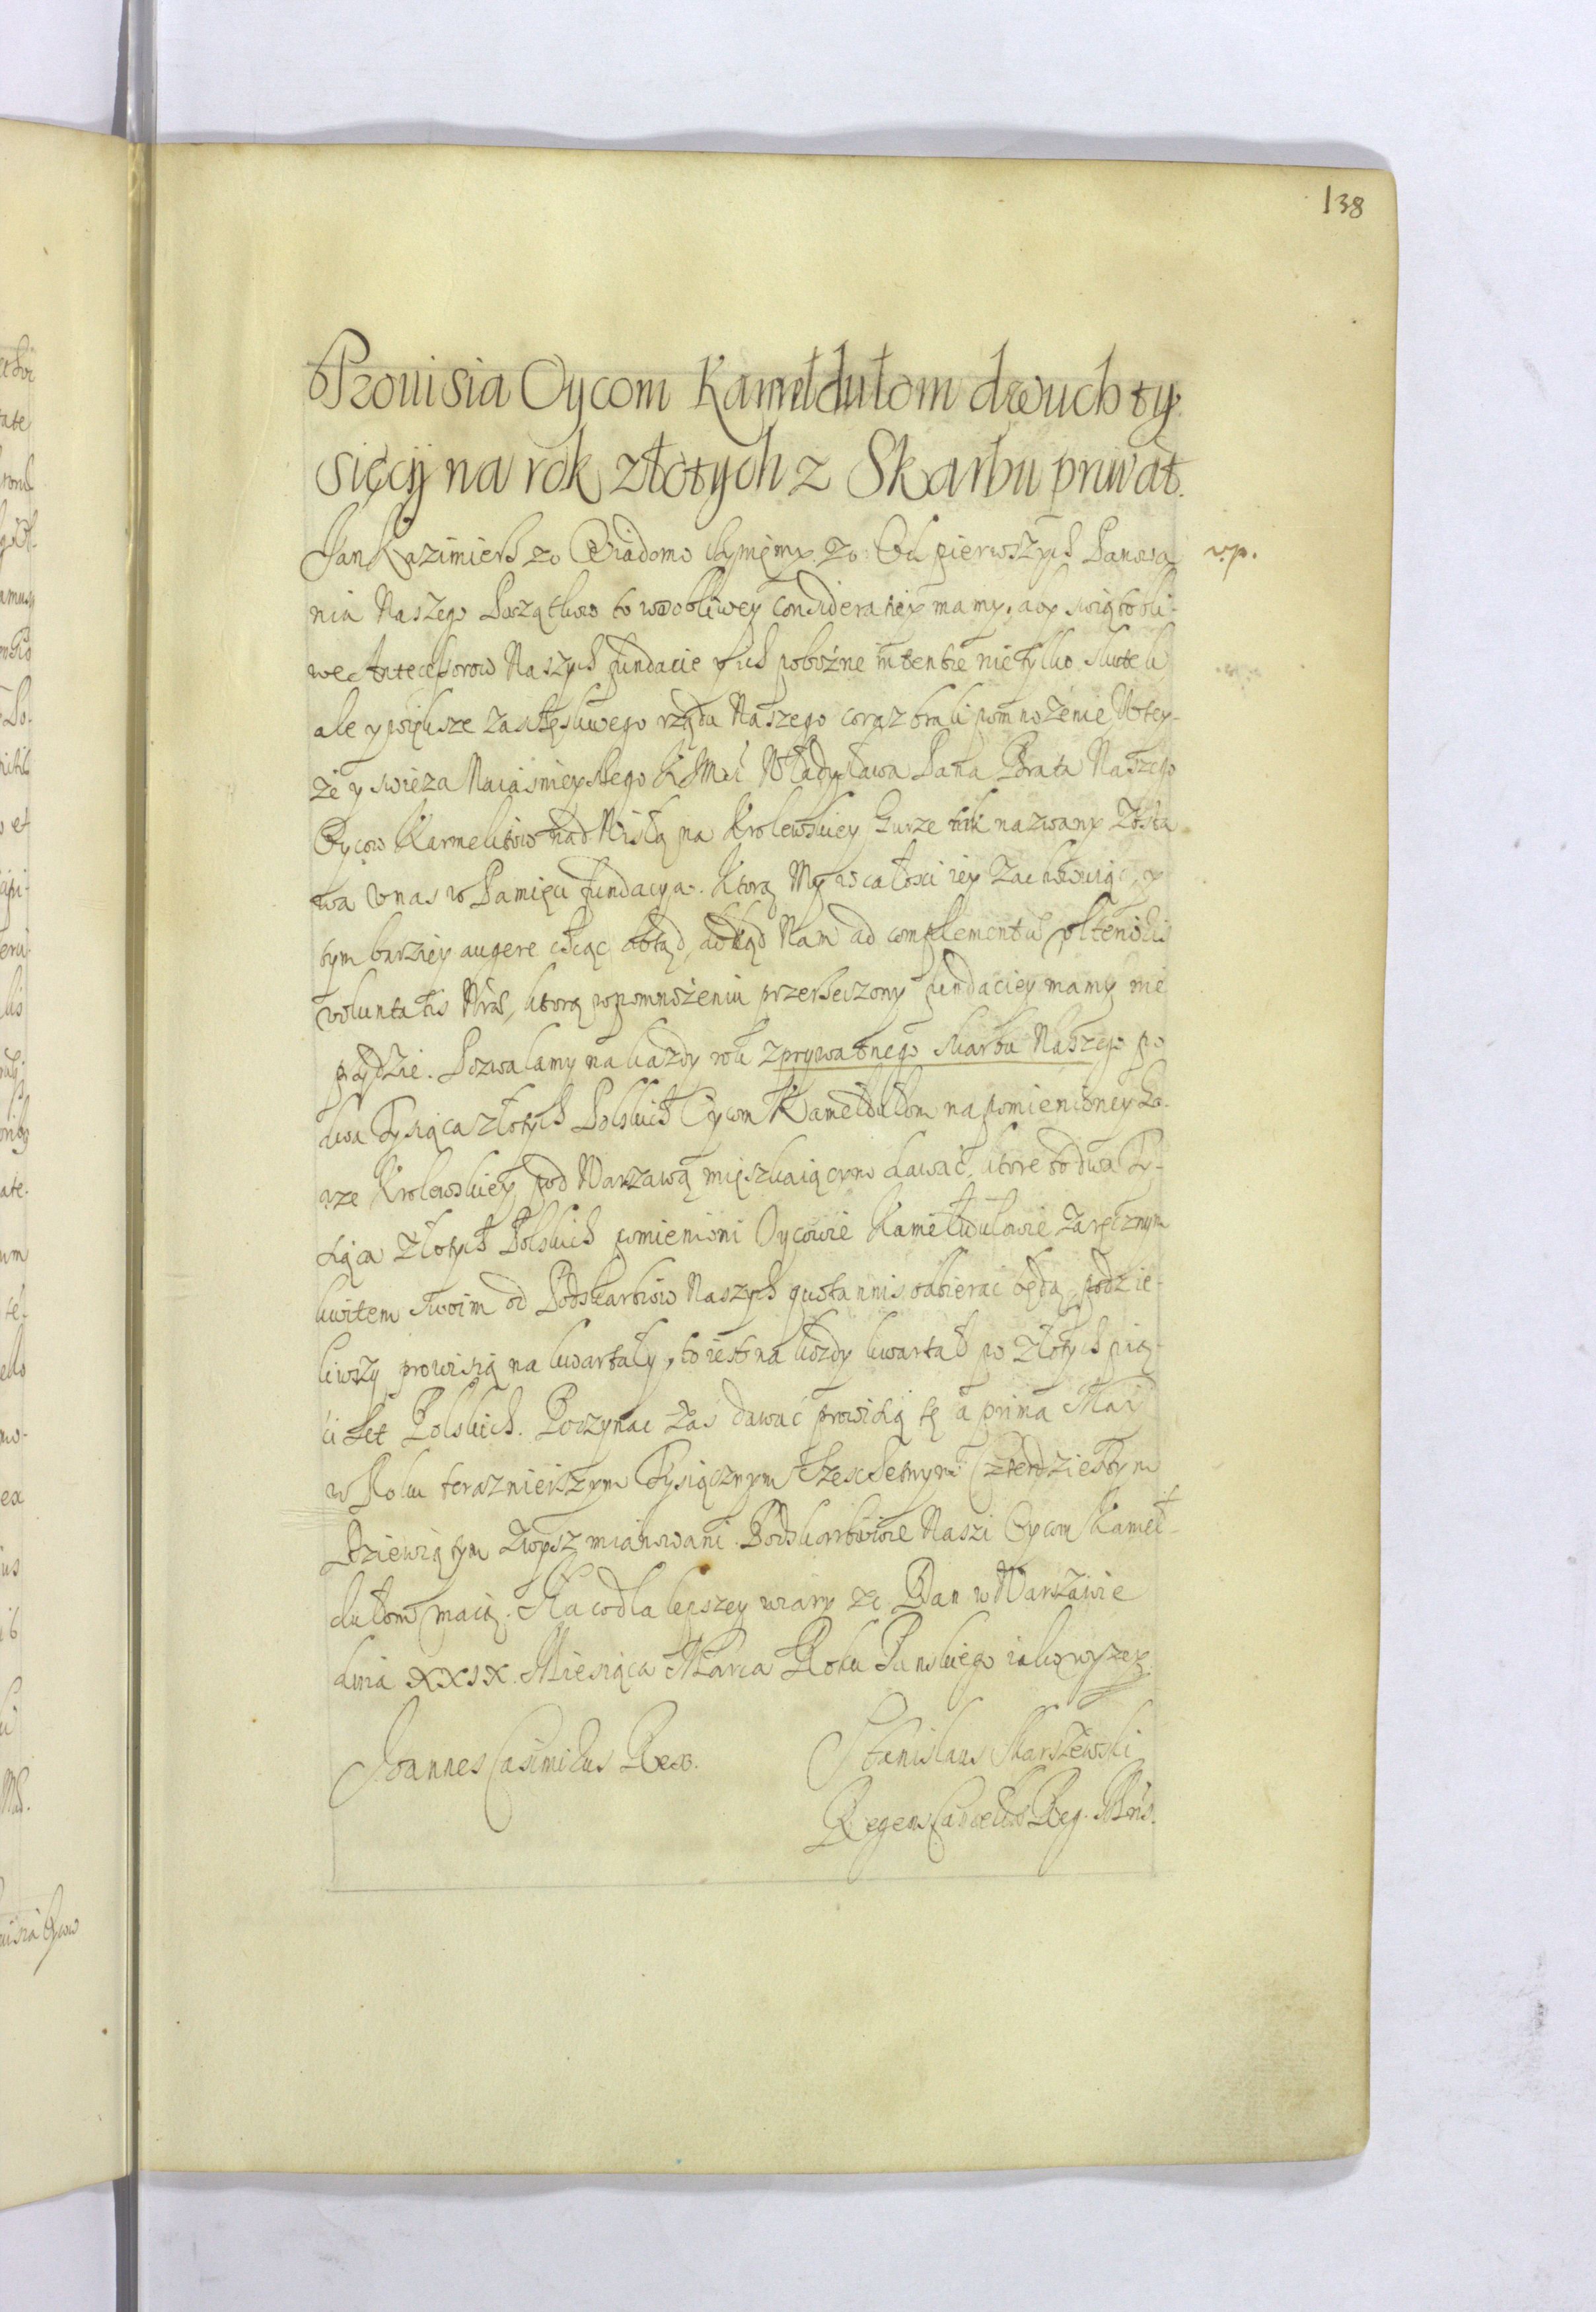 138
Prouisia Oycom Kameldułom dwuch ty-
sięcy na rok złotych z Skarbu priwat.
Jan Kazimierz &c Wiadomo czynięmy &c Od pierwszych Panowa
v.p.
nia Naszego Początkow to w osobliwey consideratiey mamy, aby swiątobli-
we Antecessorow Naszych fundacie y ich pobożne intentie nie tylko skutek
ale y większe za szczęsliwego rządu Naszego coraz brali pomnożenie W tey-
że y swieża Naiasnieyszego K JMci Władysława Pana Brata Naszego
Oycow Karmelitow nad Wisłą na Krolewskiey Gurze tak nazwany Zosta
wa v nas w Pamięci fundacya. Ktorą My w całosci iey zachowuiąc, y
tym barziey augere chcąc dotąd, dokąd Nam ad complementum
voluntatis Nrae, ktorą w pomnożeniu przerzeczony fundaciey mamy nie
przydzie. Pozwalamy na każdy rok z prywatnego skarbu Naszego po
dwa Tysiąca złotych Polskich Oycom Kamełdułom na pomienioney Go-
rze Krolewskiey pod Warszawą mięszkaiącym dawać, ktore to dwa Ty-
siąca Złotych Polskich pomienioni Oycowie Kamełdulowie Za ręcznym
kwitem swoim od Podskarbich Naszych quotannis odbierac będą, podzie-
liwszy prowisią na kwartały, to iest na kożdy kwartał po Złotych pię-
ci Set Polskich. Poczynac zas dawać prowisią tę a prima Maii
w Roku teraznieiszym Tysiącznym Szescsetnym Czterdziestym
Dziewiątym Zwysz mianowani Podskarbiowie Naszi Oycom Kameł-
dułom maią. Na co dla lepszey wiary &c. Dan w Warszawie
dnia XXIX. Miesiąca Marca Roku Panskiego iako wyszey.
Joannes Casimirus Rex.
Stanislaus Skarszewski
Regens Cancellariae Reg. Mris.